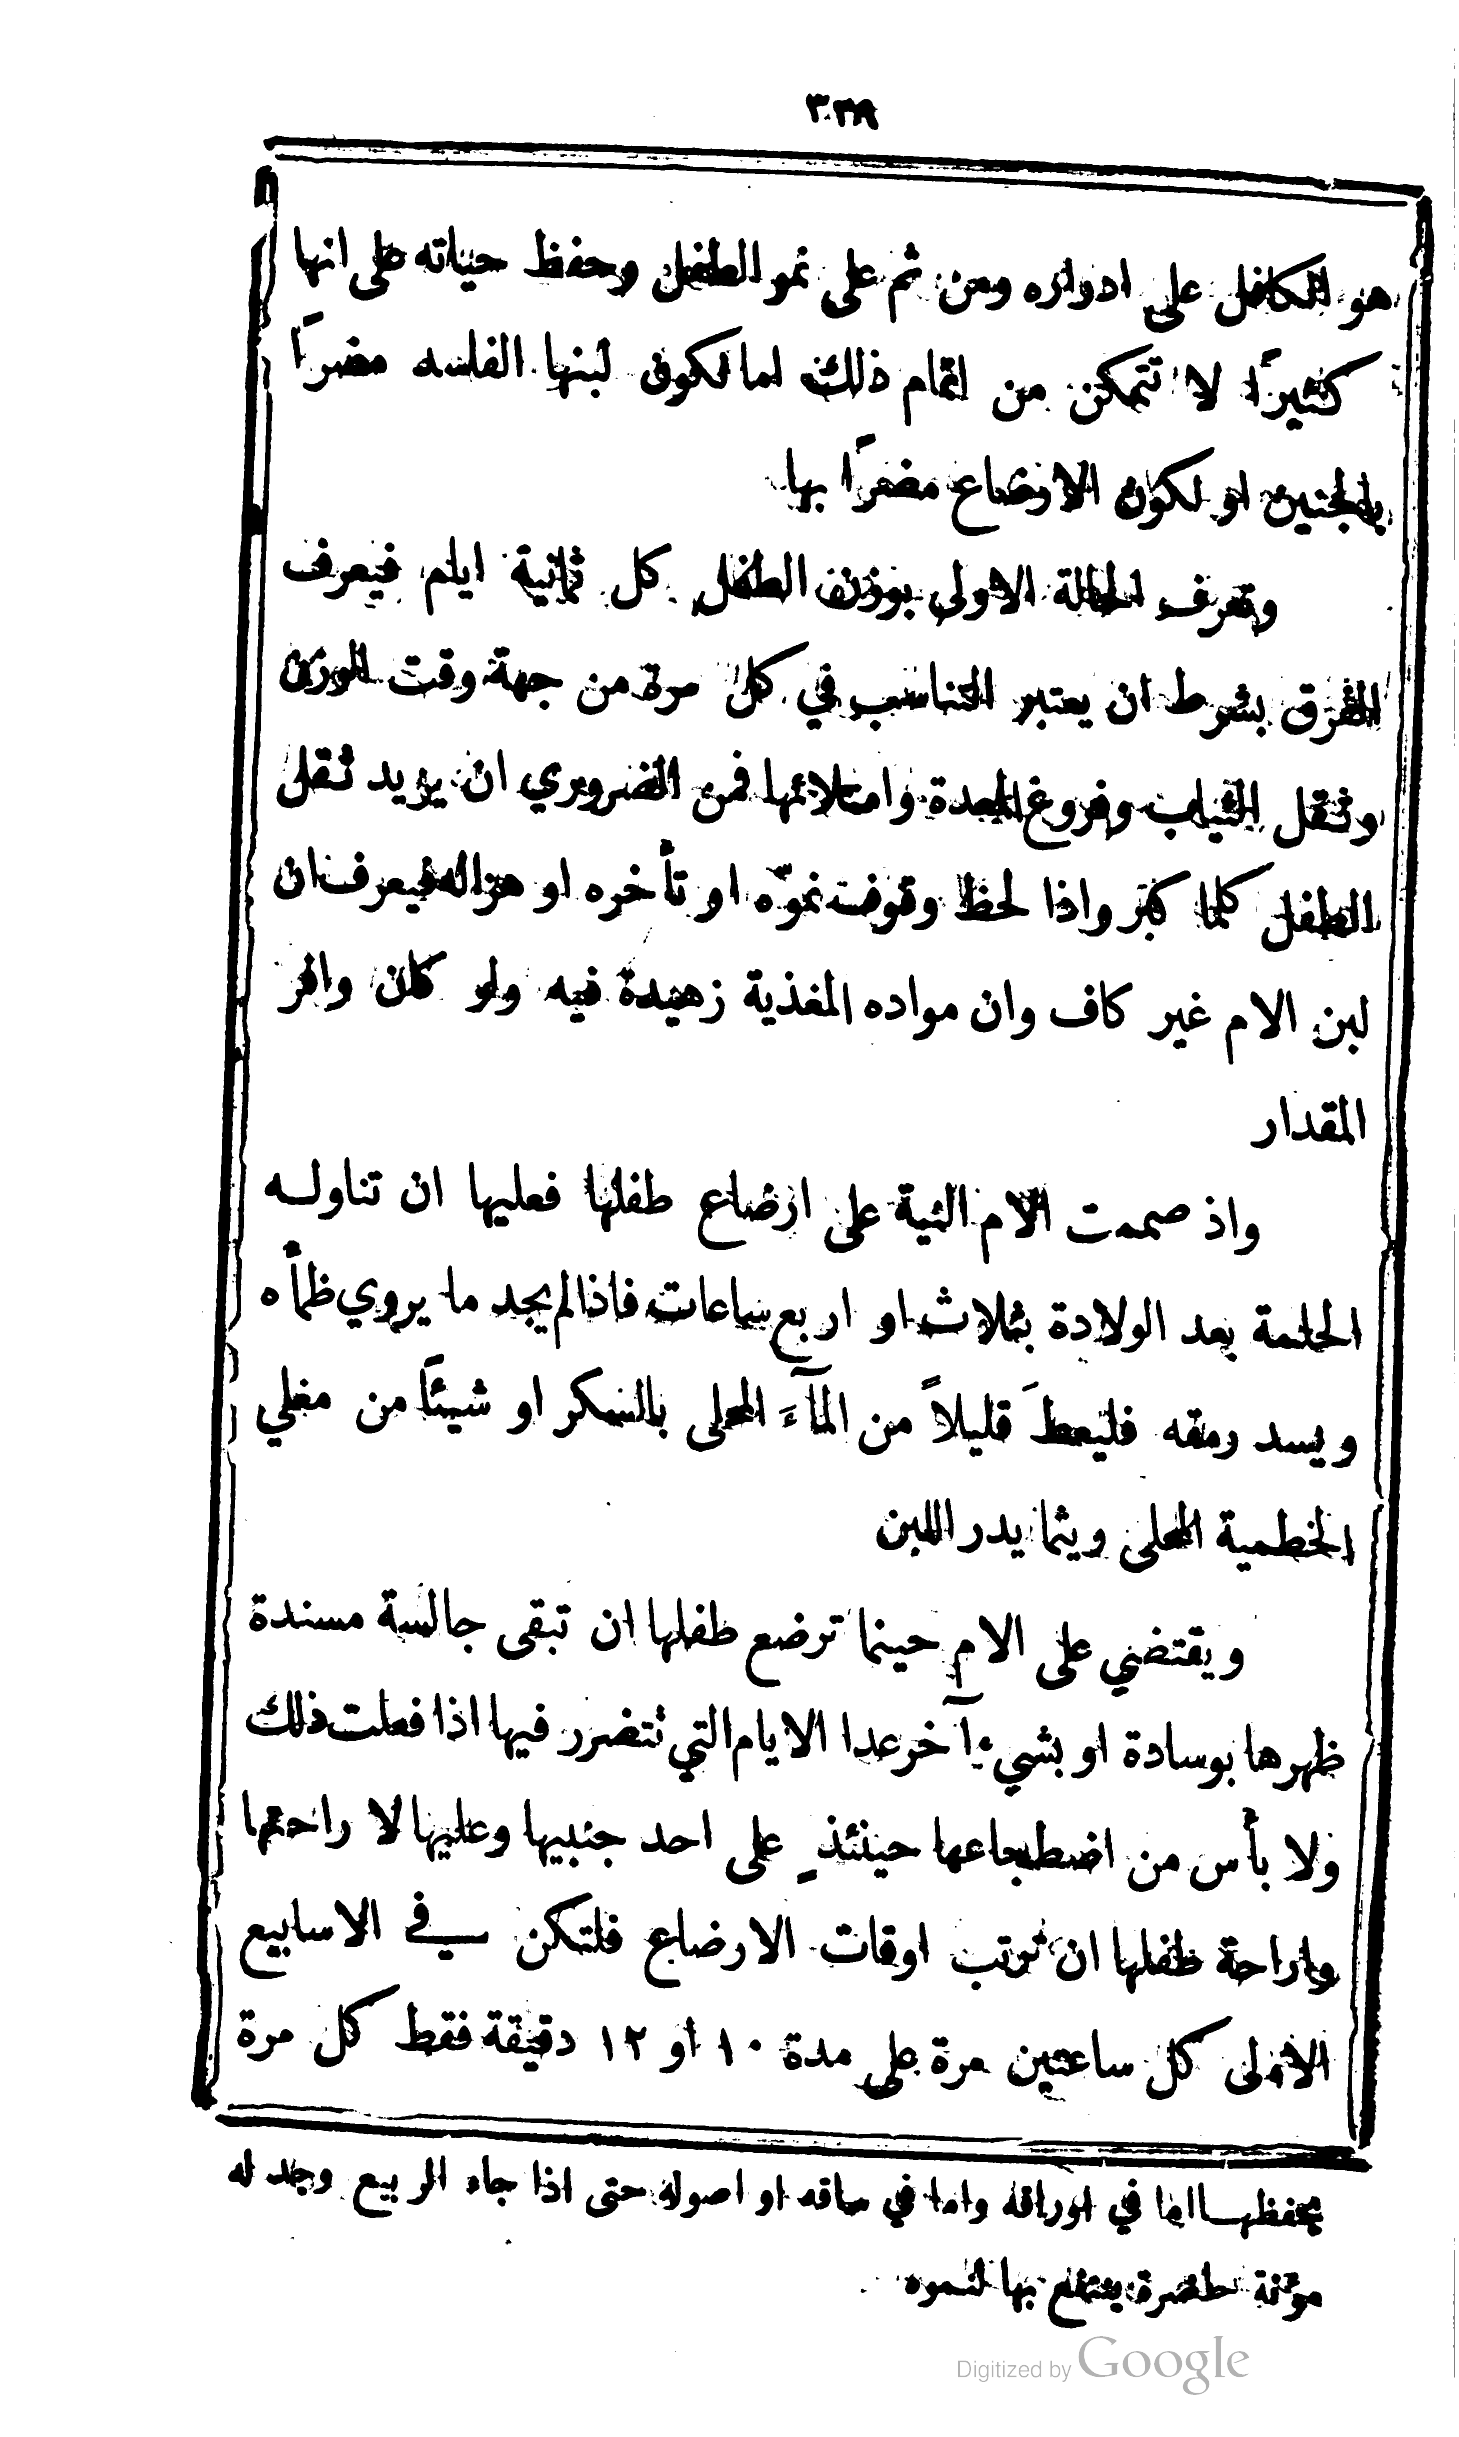 ٣٣٩
هو الكافل على ادراره ومن ثم على نمو الطفل وحفظ حياته على انها
كثيرًا لا تتمكن من اتمام ذلك اما لكون لبنها الفاسد مضرًا
بالجنين او لكون الارضاع مضرًا بها
وتعرف الحالة الاولى بوزن الطفل كل ثمانية ايام فيعرف
الفرق بشرط ان يعتبر التناسب في كل مرة من جهة وقت الوزن
وثقل الثياب وفروغ المعدة وامتلائها فمن الضروري ان يزيد ثقل
الطفل كلما كبر واذا لحظ وقوف نموّه او تأخره او هزاله فيعرف ان
لبن الام غير كاف وان مواده المغذية زهيدة فيه ولو كان وافر
المقدار
واذ صممت الام النية على ارضاع طفلها فعليها ان تناولـه
الحلمة بعد الولادة بثلاث او اربع ساعات فاذا لم يجد ما يروي ظمأه
ويسد رمقه فليعطَ قليلاً من المآء المحلى بالسكر او شيئًا من مغلي
الخطمية المحلى ريثما يدر اللبن
ويقتضي على الام حينما ترضع طفلها ان تبقى جالسة مسندة
ظهرها بوسادة او بشيء آخر عدا الايام التي تتضرر فيها اذا فعلت ذلك
ولا بأس من اضطجاعها حينئذٍ على احد جنبيها وعليها لا راحتها
واراحة طفلها ان ترتب اوقات الارضاع فلتكن في الاسابيع
الاولى كل ساعتين مرة على مدة ١٠ او ١٢ دقيقة فقط كل مرة
يحفظهـا اما في اوراقه واما في ساقه او اصوله حتى اذا جاء الربيع وجد له
مؤنة حاضرة ينتفع بها لنموه
Digitized by Google